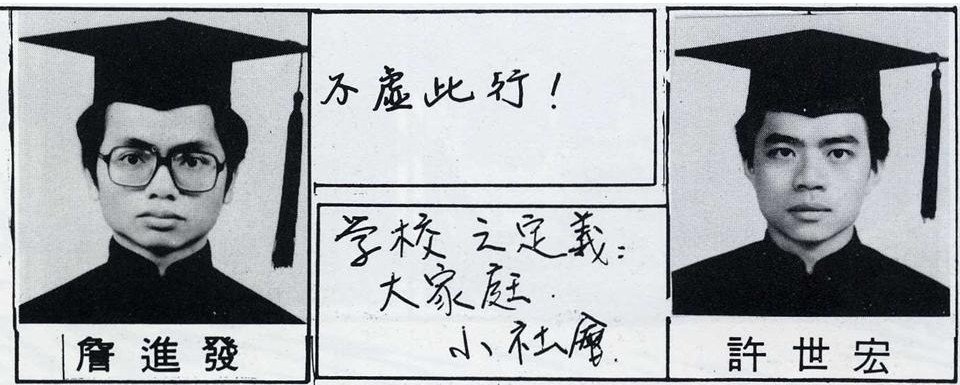 不虛此行！
学校之定義：
大家庭．
小社會．
詹進發
許世宏